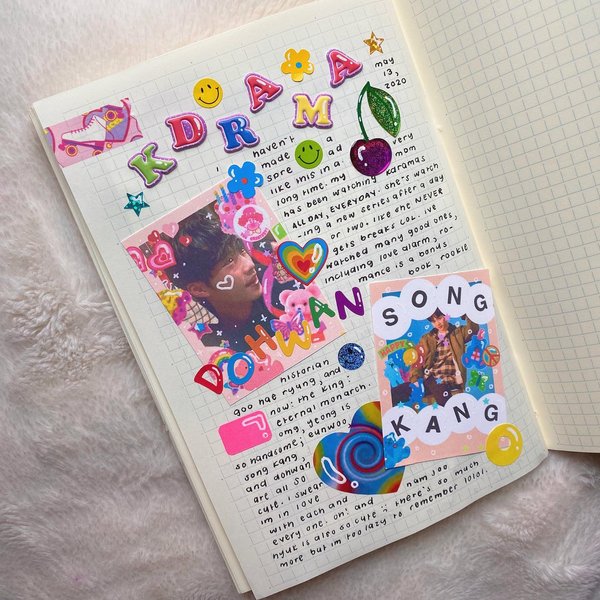 KDRAMA
may
13,
2020
i haven't
made a very
spre ad
like this in a
long time. my mom
has been watching kdramas
ALL DAY, EVERYDAY. she's watch
-ing a new series after a day
or two. like she NEVER
gets breaks LOL. ive
watched many good ones,
including love alarm, ro,
mance is a bonus
book, rookie
DOHWAN
SONG
KANG
historian
goo hae ryung, and
now: the king:
eternal monarch.
omg, yeong is
so handsome; eunwoo
song kang,
and dohwan
are all SO
cute. i swear
im in love
with each and
every one. oh! and nam joo
hyuk is also so cute ;; there's so much
more but im too lazy to remember lolol.